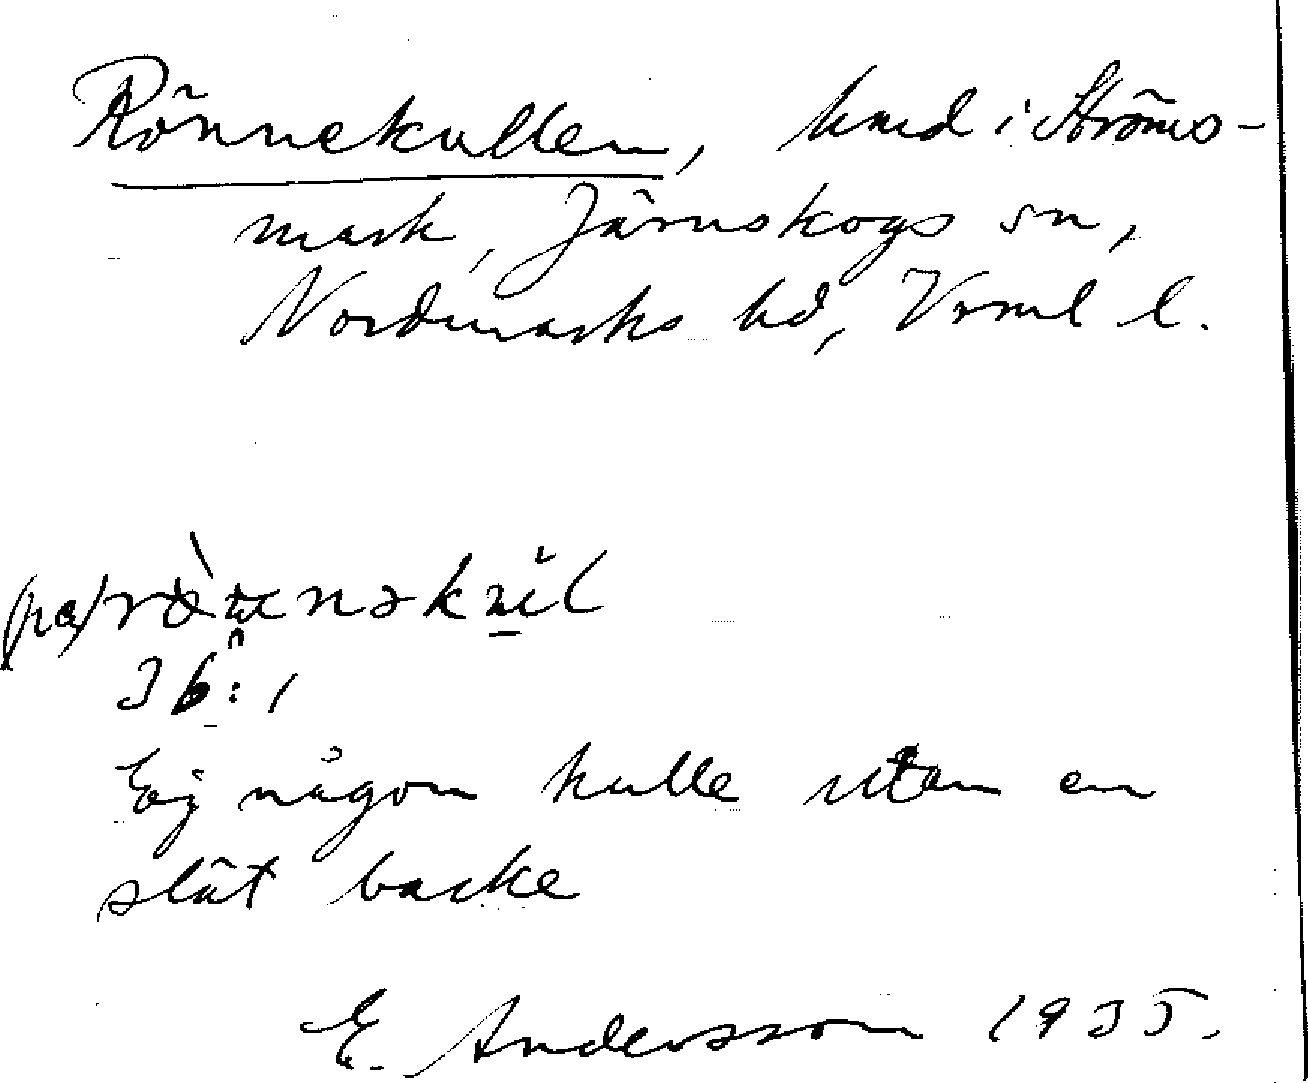 Rönnekullen, hmd i Ströms-
mark, Järnskogs sn,
Nordmarks hd, Vrml l.
(på)
3 b: 1
Ej någon kulle utan en
slät backe
E. Andersson 1935.